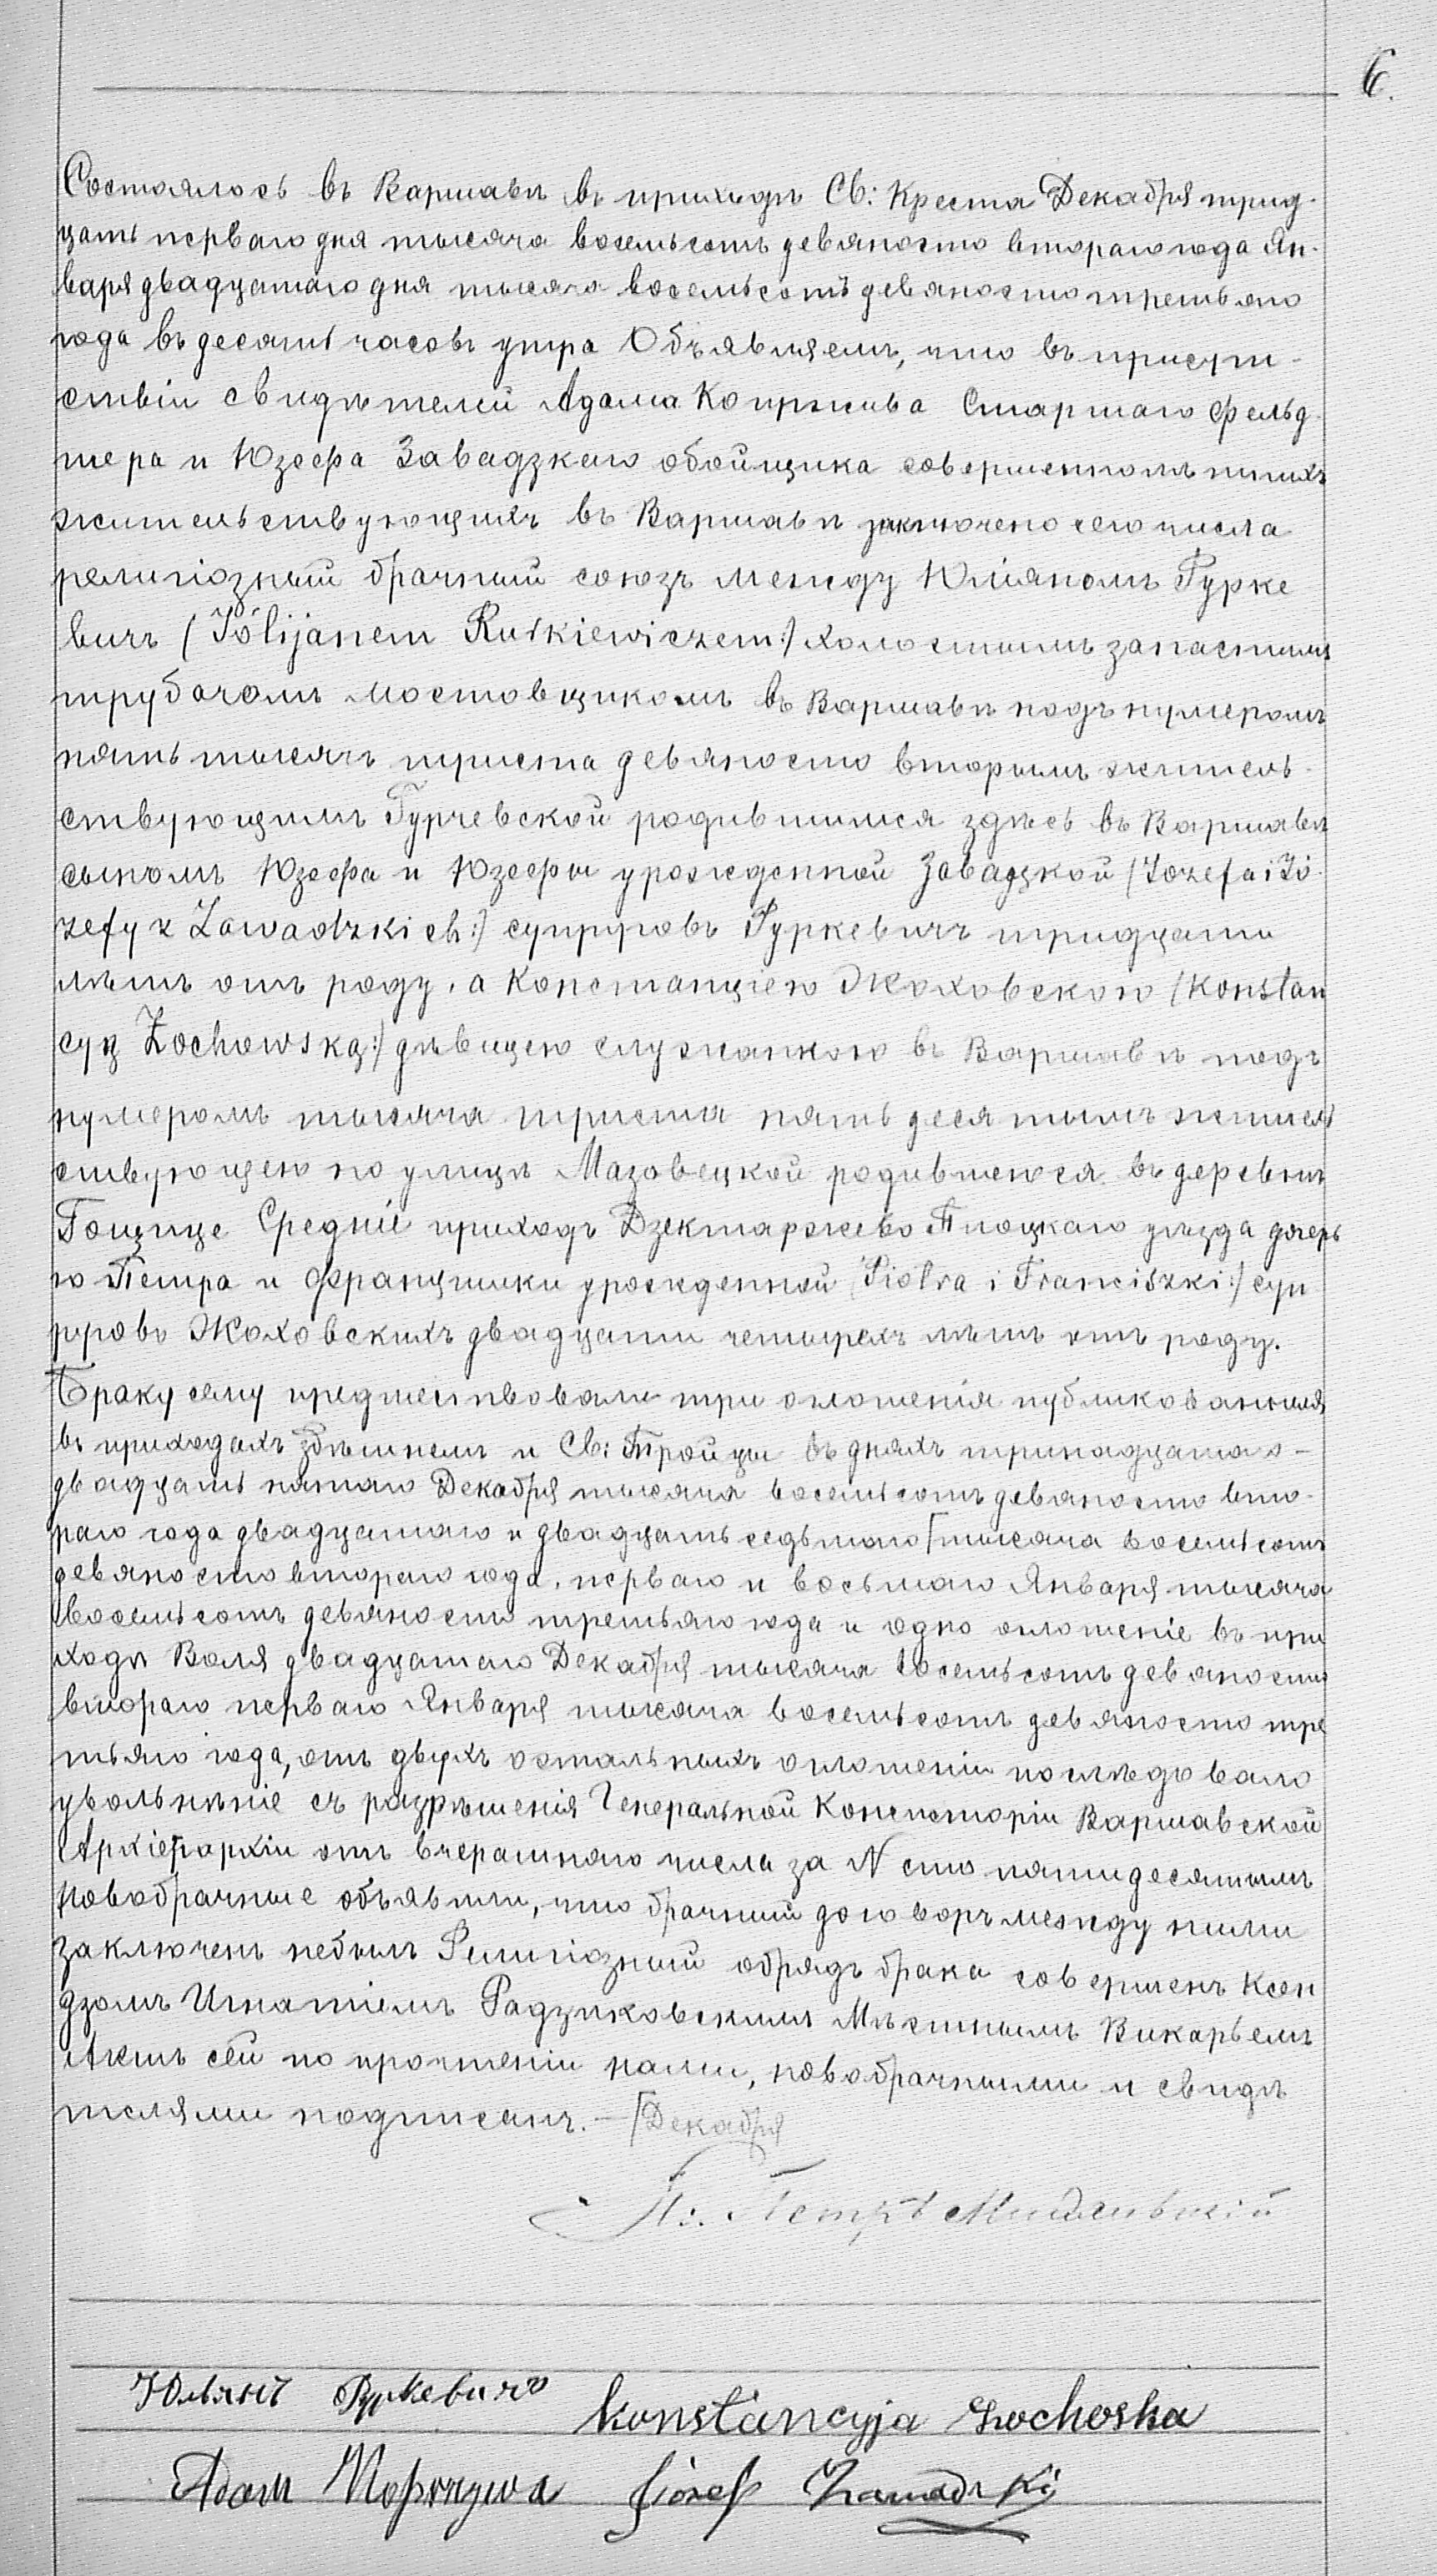 6.
Состоялось въ Варшавѣ въ приходѣ Св: Креста Декабря трид-
цать перваго дня тысяча восемьсотъ девяносто втораго года Ян-
варя двадцатаго дня тысяча восемьсотъ девяносто третьяго
года въ десять часовъ утра Объявляемъ, что въ присут-
ствіи свидѣтелей Адама Копржива Старшаго фельд-
шера и Юзефа Завадзкаго обойщика совершеннолѣтнихъ
жительствующихъ въ Варшавѣ заключено сего числа
религіозный брачный союзъ между Юліяномъ Рурке
вичъ (Jólijanem Rurkiewiczem:) холостымъ запаснымъ
трубачомъ мостовщикомъ въ Варшавѣ подъ нумеромъ
пять тысячъ триста девяносто вторымъ жительь-
ствующимъ Гурчевской родившимся здѣсь въ Варшавѣ
сыномъ Юзефа и Юзефы урожденной Завадзкой (Jozefa i Jó-
zefy z Zawadzkich:) супруговъ Руркевичъ тридцати
лѣтъ отъ роду, а Констанціею Жоховскою (Konstan
cyą Żochowską:) дѣвицею служанкою въ Варшавѣ подъ
нумеромъ тысяча триста пятьдесятымъ житель
ствующею по улицѣ Мазовецкой родившеюся въ деревнѣ
Гощице Средніе приходъ Дзектаржево Плоцкаго уѣзда дочерь
ю Петра и Францишки урожденной (Piotra i Franciszki:) суп
руговъ Жоховскихъ двадцати четырехъ лѣтъ отъ роду.
Браку сему предшествовали три оглошенія публикованныя
въ приходахъ здѣшнемъ и Св: Тройцы въ дняхъ тринадцатаго-
двадцать пятаго Декабря тысяча восемьсотъ девяносто вто-
раго года двадцатаго и двадцать седьмаго [тысяча восемьсотъ
девяносто втораго года, перваго и восьмаго Января тысяча
восемьсотъ девяносто третьяго года и одно оглошеніе въ при
ходѣ Воля двадцатаго Декабря тысяча восемьсотъ девяносто
втораго перваго Января тысяча восемьсотъ девяносто тре
тьяго года, отъ двухъ остальныхъ оглошеніи послѣдовало
увольнѣніе съ разрѣшенія Генеральной Консисторіи Варшавской
Архіепархіи отъ вчерашняго числа за N сто пятидесятымъ
Новобрачные объявили, что брачный договоръ между ними
заключенъ небылъ Религіозный обрядъ брака совершенъ Ксен
дзомъ Игнатіемъ Радзиковскимъ Мѣстнымъ Викарьемъ
Актъ сей по прочтеніи нами, новобрачными и свидѣ
телями подписанъ. — [Декабря
Петръ
Юльянъ Руркевичъ Konstancyja Zochoska
Adam Koprzywa Józef Zawadzki